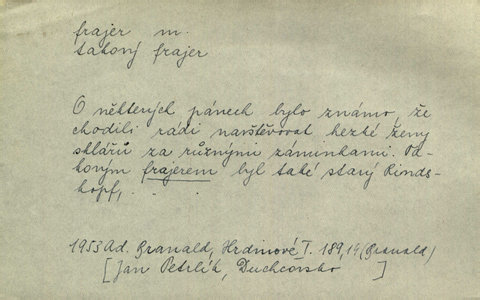 frajer m.
takový frajer
O některých pánech bylo známo, že
chodili rádi navštěvovat hezké ženy
sklářů za různými záminkami. Ta-
kovým frajerem byl také starý Rinds-
kopf, . . .
1953 Ad. Branald, Hrdinové I. 189,14 (Branald)
[Jan Petrlík, Duchcovsko ]